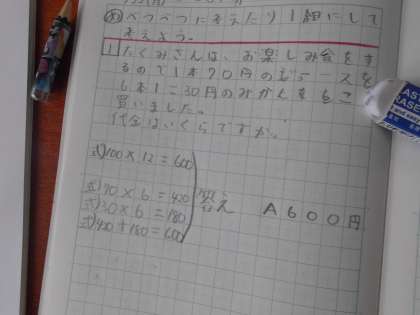 め べつべつに考えたり1組にして
考えよう。
1 たくみさんは、お楽しみ会をす
るので1本70円のジュースを
6本1こ30円のみかんを6こ
買いました。
代金はいくらですか。
式100×12=600
式70×6=420
式30×6=180
式420+180=600
答え A600円